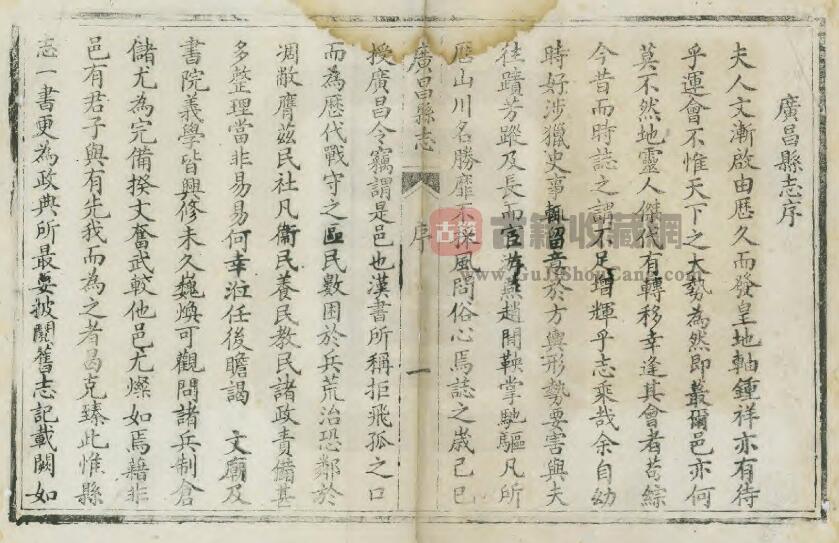 廣昌縣志序
夫人文漸啟由歷久而發皇地軸鍾祥亦有待
乎運會不惟天下之大勢為然即蕞爾邑亦何
莫不然地靈人傑代有轉移幸逢其會者苟綜
今昔而時誌之謂不足增輝乎志乘哉余自幼
時好涉獵史事輒留意於方輿形勢要害與夫
往蹟芳蹤及長而宦游燕趙間鞅掌馳驅凡所
歷山川名勝靡不採風問俗心焉誌之歲己巳
廣昌縣志
序
一
授廣昌令竊謂是邑也漢書所稱拒飛孤之口
而為歷代戰守之區民數困於兵荒治恐鄰於
凋敝膺茲民社凡衛民養民教民諸政責備甚
多整理當非易易何幸涖任後瞻謁 文廟及
書院義學皆興修未久巍煥可觀問諸兵制倉
儲尤為完備揆文奮武較他邑尤燦如焉藉非
邑有君子與有先我而為之者曷克臻此惟縣
志一書更為政典所最要披閱舊志記載闕如
古籍
古籍收藏網
www.GuJiShouCang.com